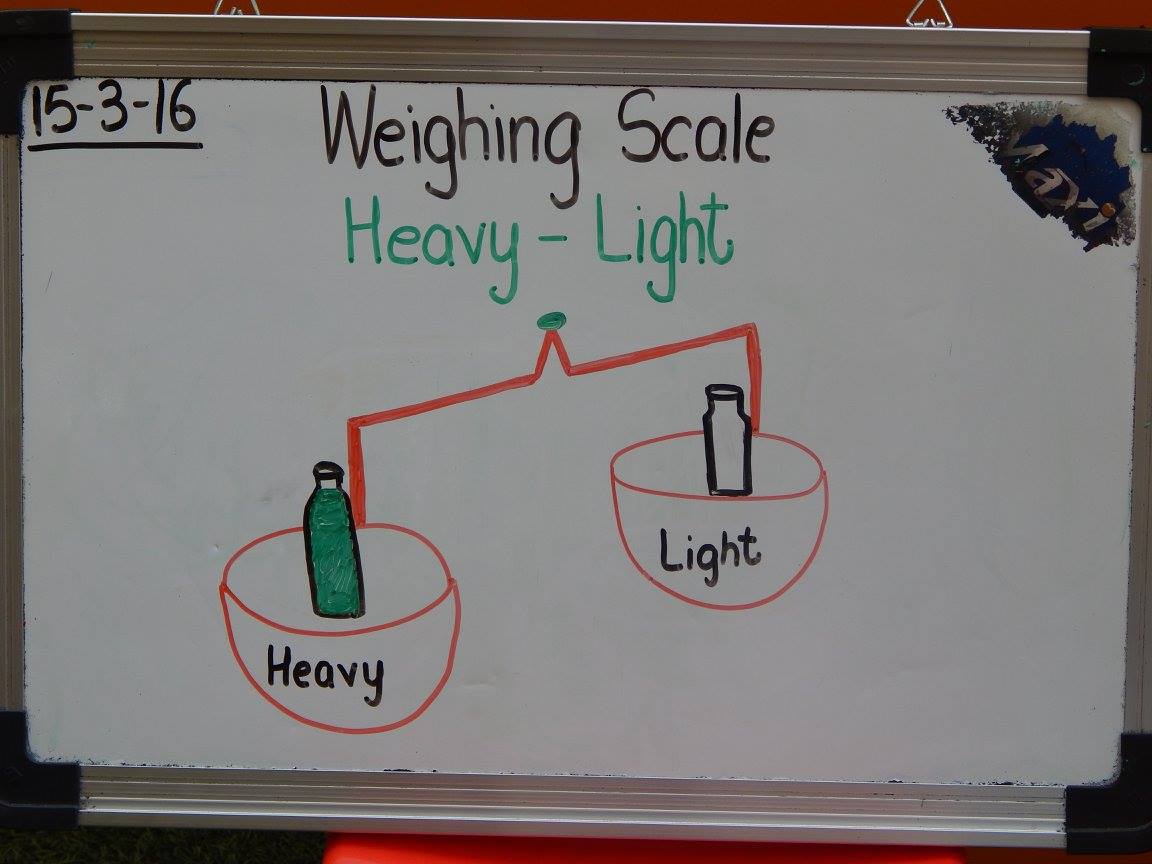 15-3-16
Weighing Scale
Heavy - Light
Light
Heavy